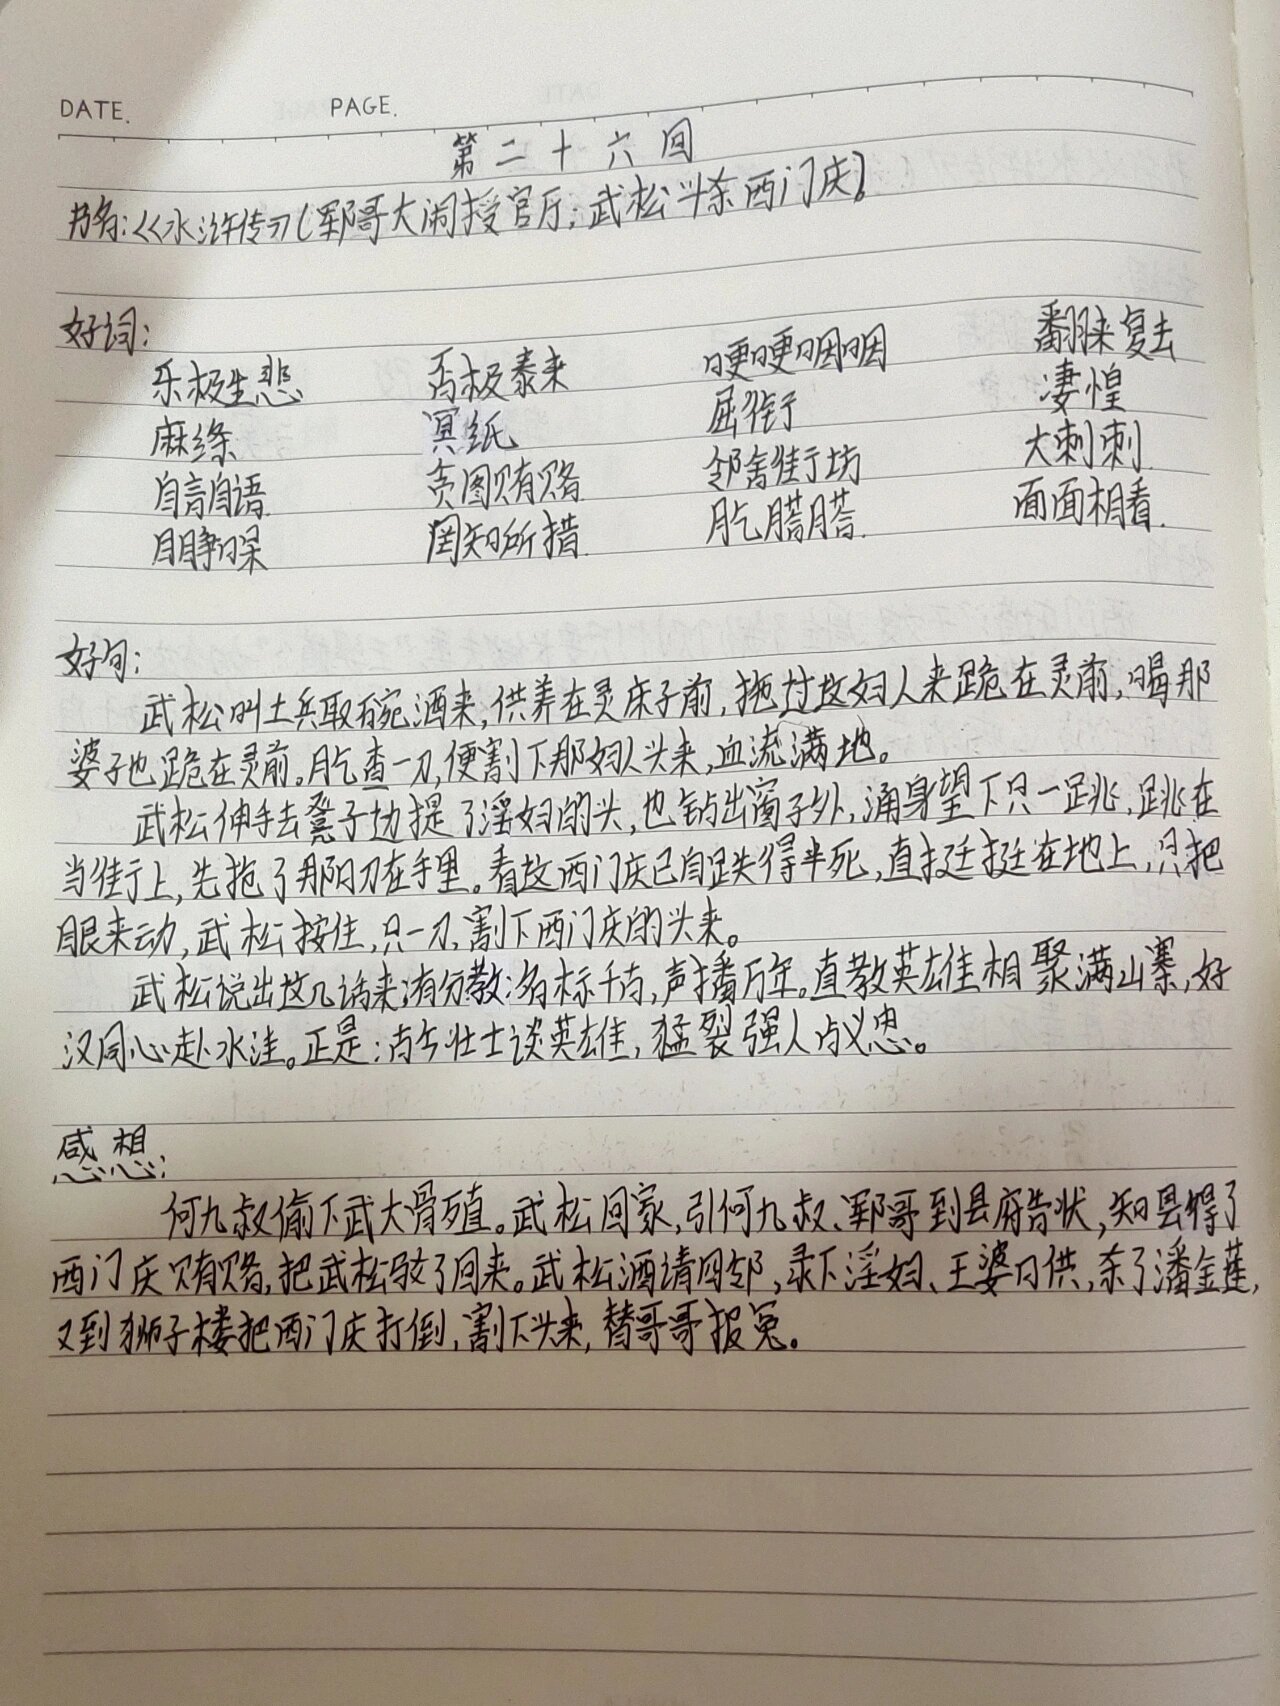 DATE. PAGE.
第二十六回
书名:《水浒传》(郓哥大闹授官厅;武松斗杀西门庆)
好词:
乐极生悲 否极泰来 哽哽咽咽 翻来复去
麻绦 冥纸 屈衔 凄惶
自言自语 贪图贿赂 邻舍街坊 大刺刺
睁 罔知所措 肐膪膪 面面相看
好句:
武松叫土兵取碗酒来,供养在灵床子前,拖过故妇人来跪在灵前,喝那
婆子也跪在灵前。肐查一刀,便割下那妇人头来,血流满地。
武松伸手去凳子边提了淫妇的头,也钻出窗子外,涌身望下只一跳,跳在
当街上,先拖了那口刀在手里。看故西门庆已自跌得半死,直挺挺在地上,只把
眼来动,武松按住,只一刀,割下西门庆的头来。
武松说出这几话来有分教:名标千古,声播万年。直教英雄相聚满山寨,好
汉同心赴水洼。正是:古今壮士谈英雄,猛裂强人占义忠。
感想:
何九叔偷下武大骨殖。武松回家,引何九叔、郓哥到县府告状,知县得了
西门庆贿赂,把武松驳了回来。武松酒请四邻,录下淫妇、王婆口供,杀了潘金莲,
又到狮子楼把西门庆打倒,割下头来,替哥哥报冤。